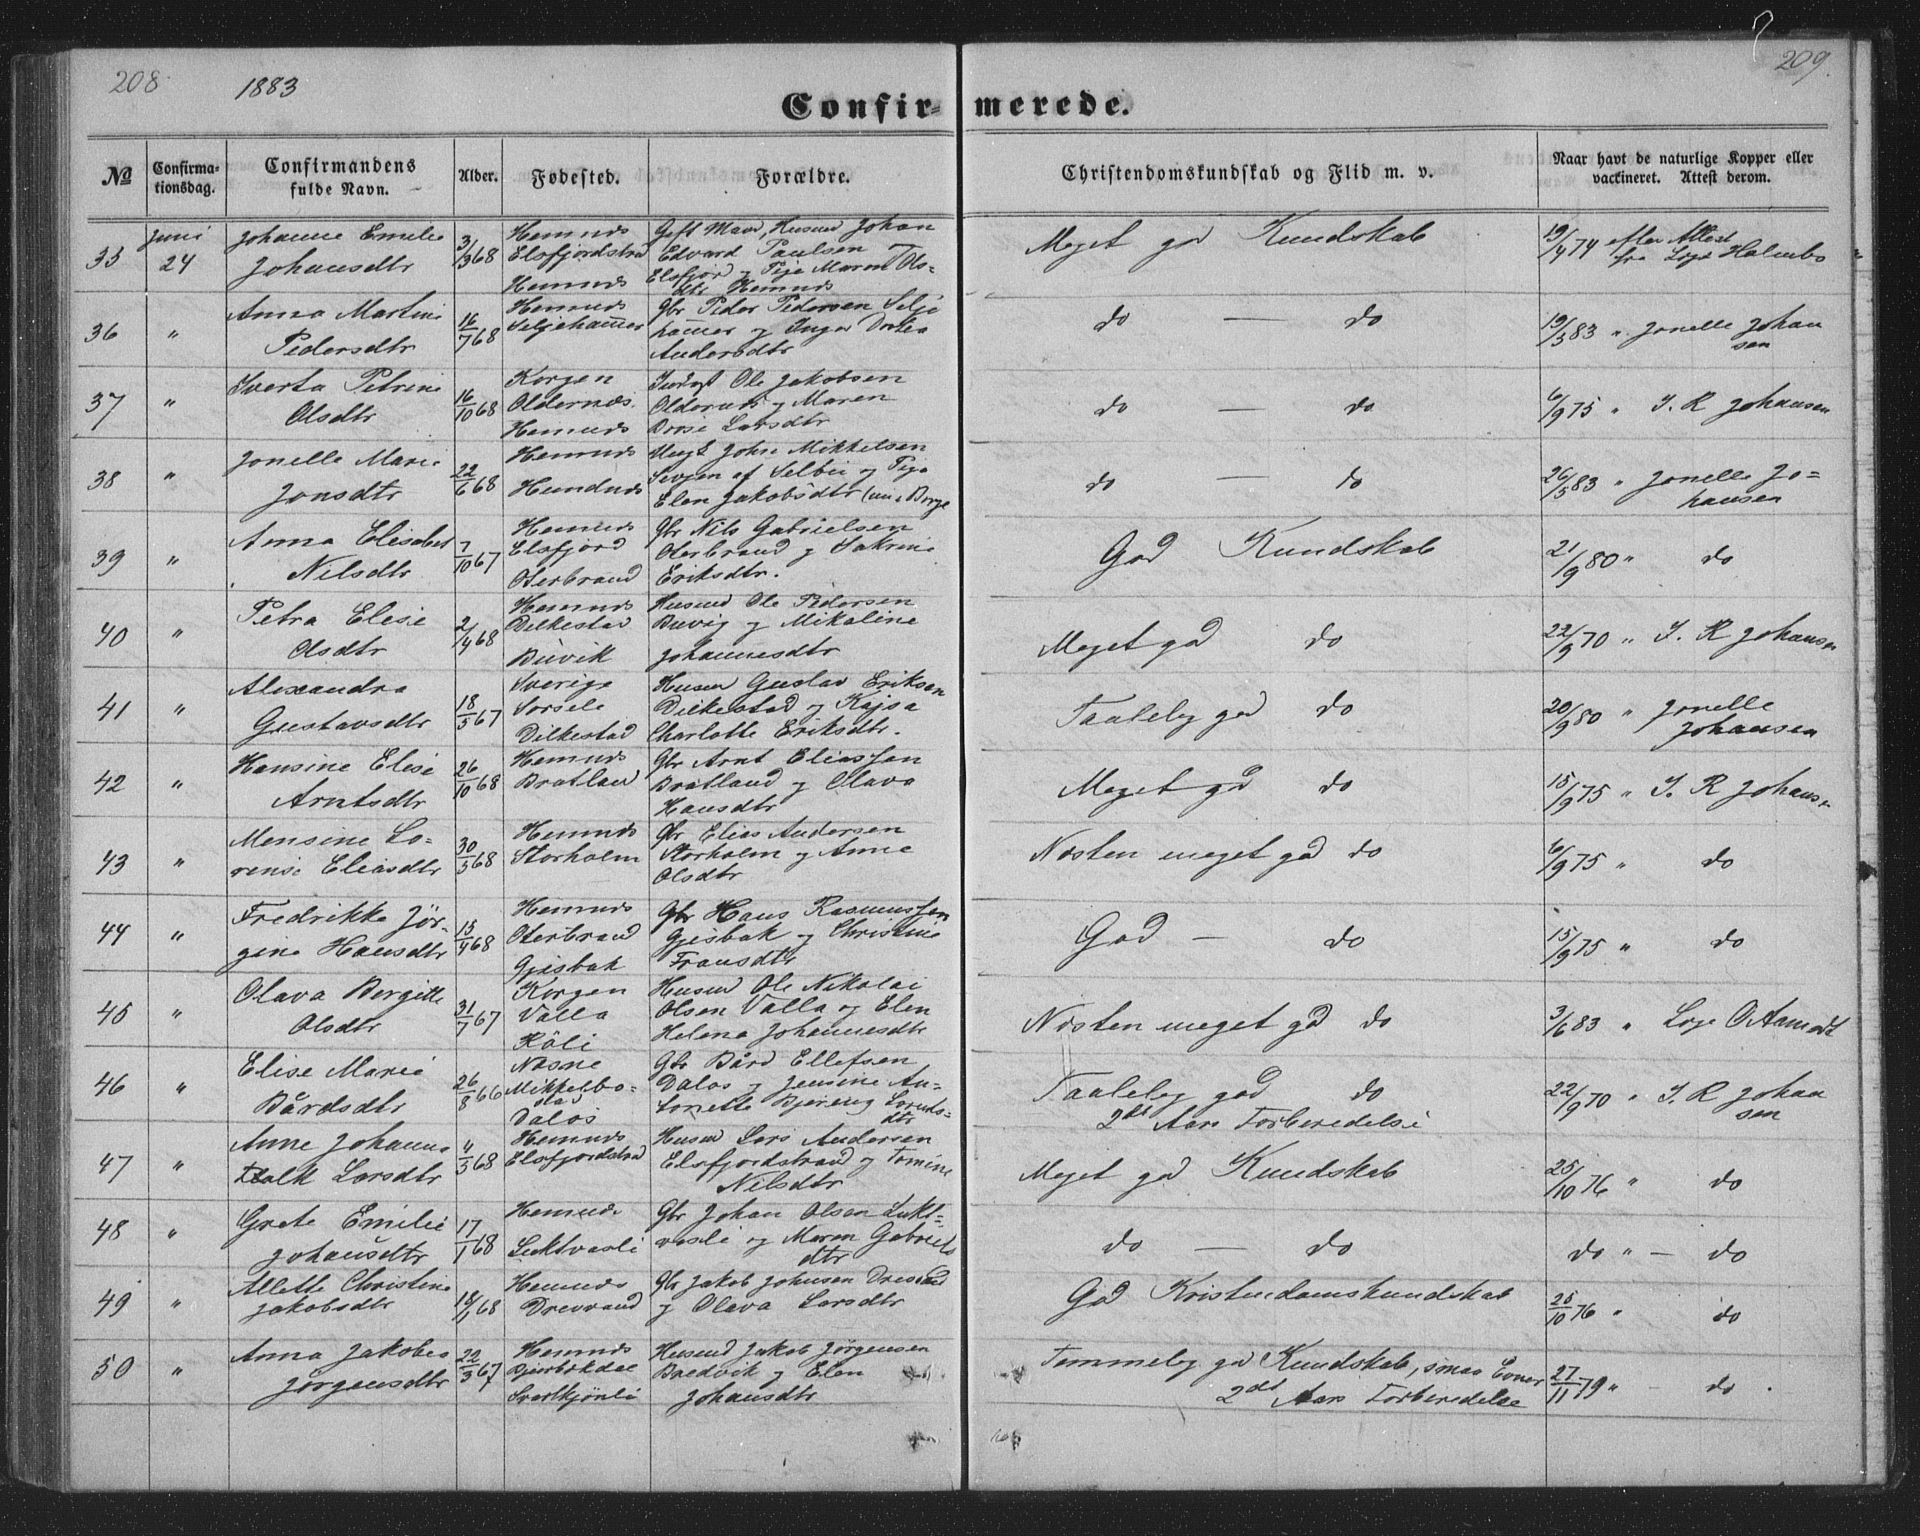 208
1883
209
Confir= merede.
No
Confirma-
tionsdag.
Confirmandens
fulde Navn.
Alder.
Fødested.
Forældre.
Christendomskundskab og Flid m. v.
Naar havt de naturlige Kopper eller
vackineret. Attest derom.
35 Juni 24
Johanne Emilie
Johansdtr
3/3 68
Hemnes
Elsfjordstrd
Hemnes
Gift Mand, Husmd Johan
Edvard Paulsen
Elsfjor og Pige Maren Ols-
dtr Hemnes
Meget god Kundskab
19/4 74 efter Attest
fra Læge Holmbo
36 "
Anna Martine
Pedersdtr
16/7 68
Hemnes
Seljehamer
Gbr Peder Pedersen Selje
hamer og Inger Dortea
Andersdtr
do — do
19/3 83 " Jonelle Johan
sen
37 "
Iverta Petrine
Olsdtr
16/10 68
Korgen
Oldernæs
Hemnes
Ole Jakobsen
Oldernes og Maren
Larsdtr
do — do
6/9 75 " I. R Johansen
38 "
Jonelle Marie
Jonsdtr
22/6 68
Hemnes
Hemdnes
Ungk John Mikkelsen
af Selbu og Pige
Elen Jakobsdtr
do — do
26/5 83 " Jonelle Jo-
hansen
39 "
Anna Elisabet
Nilsdtr
7/10 67
Hemnes
Elsfjord
Oterbrand
Gbr Nils Gabrielsen
Oterbrand og Sakrine
Eriksdtr.
God Kundskab
21/9 80 " do
40 "
Petra Elise
Olsdtr
2/4 68
Hemnes
Dilkestad
Buvik
Husmd Ole Pedersen
Buvig og Mikaline
Johannesdtr
Meget god do
22/9 70 " I. R Johansen
41 "
Alexandra
Gustavsdtr
18/5 67
Sverige
Sorsele
Dilkestad
Husm Gustav Eriksen
Dilkestad og Kajsa
Charlotte Eriksdtr.
Taalelig god do
20/9 80 " Jonelle
Johansen
42 "
Hansine Elise
Arntsdtr
26/10 68
Hemnes
Bratlan
Gbr Arnt Eliassen
Bratland og Olava
Hansdtr
Meget god do
15/9 75 " I. R Johans
43 "
Mensine Lo-
rense Eliasdtr
30/5 68
Hemnes
Storholm
Gbr Elias Andersen
Storholm og Anne
Olsdtr
Næsten meget god do
6/9 75 " do
44 "
Fredrikke Jør-
gine Hansdtr
15/4 68
Hemnes
Oterbrand
Gjesbak
Gbr Hans Rasmussen
Gjesbak og Christine
Fransdtr
God — do
15/9 75 " do
45 "
Olava Bergitte
Olsdtr
31/7 67
Korgen
Valla
Røli
Husm Ole Nikolai
Olsen Valla og Elen
Helena Johannesdtr
Næsten meget god do
3/6 83 " Læge O Aamodt
46 "
Elise Marie
Bårdsdtr
26/8 66
Næsne
Mikkelbo-
stad
Dalos
Gbr Bård Ellefsen
Dalos og Jensine An-
tonette Bjering Lornts-
dtr
Taalelig god do
2det Aars Forberedelse
22/9 70 " I. R Johan
sen
47 "
Anne Johanna
Falk Larsdtr
4/3 68
Hemnes
Elsfjordstrd
Husm Lars Andersen
Elsfjordstrand og Tomine
Nilsdtr
Meget god Kundskab
25/10 76 " do
48 "
Grete Emilie
Johansdtr
17/1 68
Hemnes
Luktvasli
Gbr Johan Olsen Lukt-
vasli og Maren Gabriels
dtr
do — do
do " — do
49 "
Allette Christine
Jakobsdtr
18/1 68
Hemnes
Drevrand
Gbr Jakob Johnsen Drevrand
og Olava Larsdtr
God Kristendomskundskab
25/10 76 " do
50 "
Anna Jakobea
Jørgensdtr
22/3 67
Hemnes
Svartkjønli
Husmd Jakob Jørgensen
Bredvik og Elen
Johansdtr
Temmelig god Kundskab, smaa Evner
2det Aars Forberedelse
27/11 79 " — do .